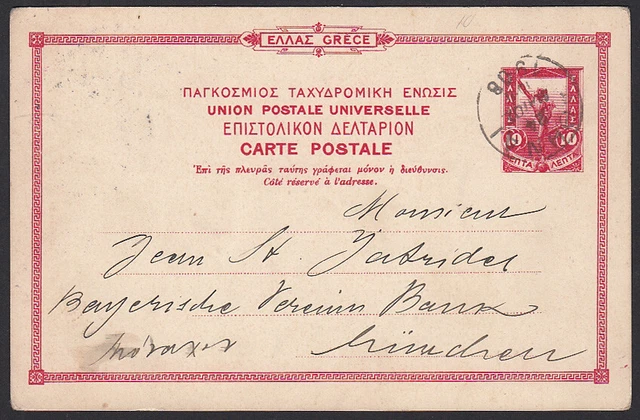 ΕΛΛΑΣ GRÈCE
ΠΑΓΚΟΣΜΙΟΣ ΤΑΧΥΔΡΟΜΙΚΗ ΕΝΩΣΙΣ
UNION POSTALE UNIVERSELLE
ΕΠΙΣΤΟΛΙΚΟΝ ΔΕΛΤΑΡΙΟΝ
CARTE POSTALE
Ἐπὶ τῆς πλευρᾶς ταύτης γράφεται μόνον ἡ διεύθυνσις.
Côté réservé à l'adresse.
ΕΛΛΑΣ
10 10
ΛΕΠΤΑ ΛΕΠΤΑ
Monsieur
Jean St. Jatrides
Bayerische Vereins Bank
München